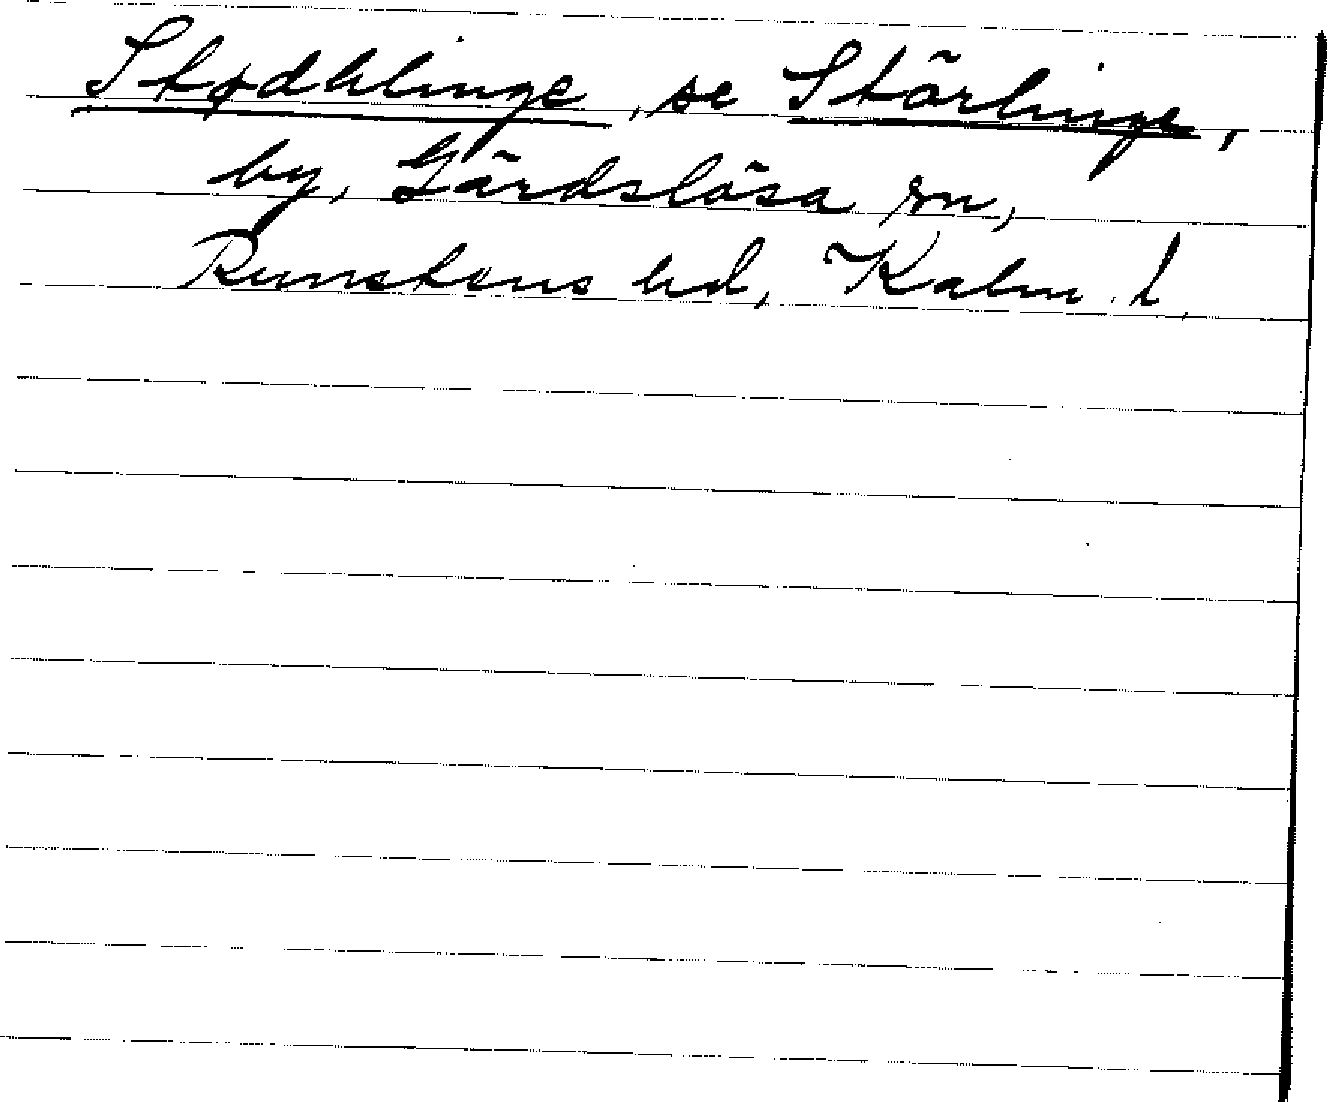 Stødhlinge, se Störlinge,
by, Gärdslösa sn,
Runstens hd, Kalm. l.